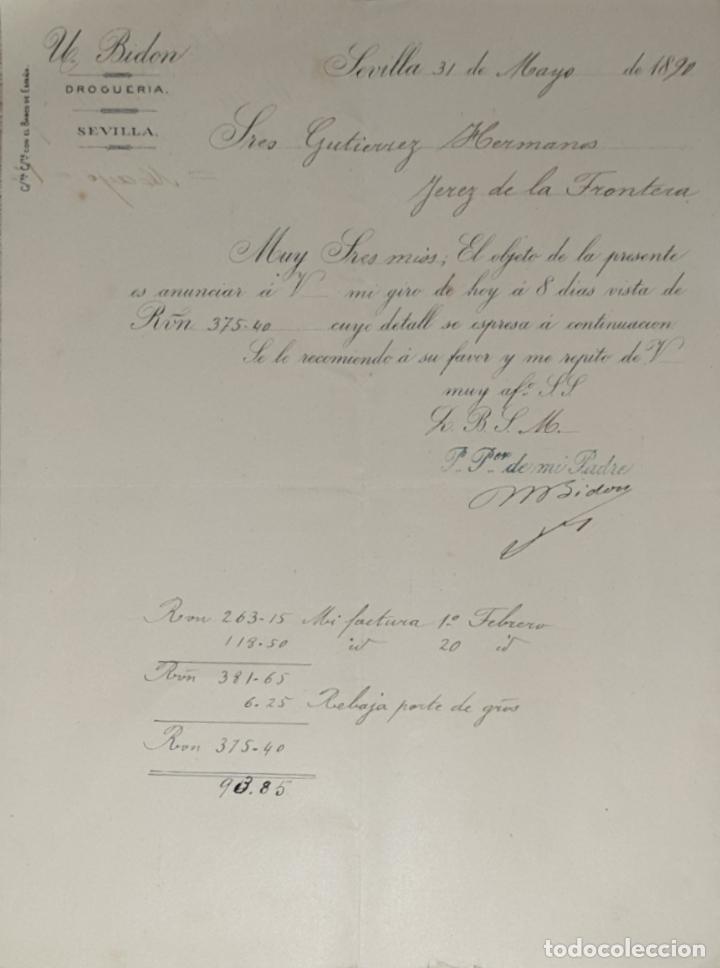 U. Bidon
DROGUERIA.
SEVILLA.
C/te C/te CON EL BANCO DE ESPAÑA.
Sevilla 31 de Mayo de 1890
Sres Gutierrez Hermanos
Jerez de la Frontera
Muy Sres mios; El objeto de la presente
es anunciar á V mi giro de hoy á 8 dias vista de
Rvn 375-40 cuyo detall se espresa á continuacion
Se lo recomiendo á su favor y me repito de V
muy af.o S.S.
L. B. S. M.
P. Por de mi Padre
MBidon
Rvon 263-15 Mi factura 1.o Febrero
118-50 id 20 id
Rvn 381-65
6-25 Rebaja porte de gros
Rvon 375-40
93.85
todocoleccion